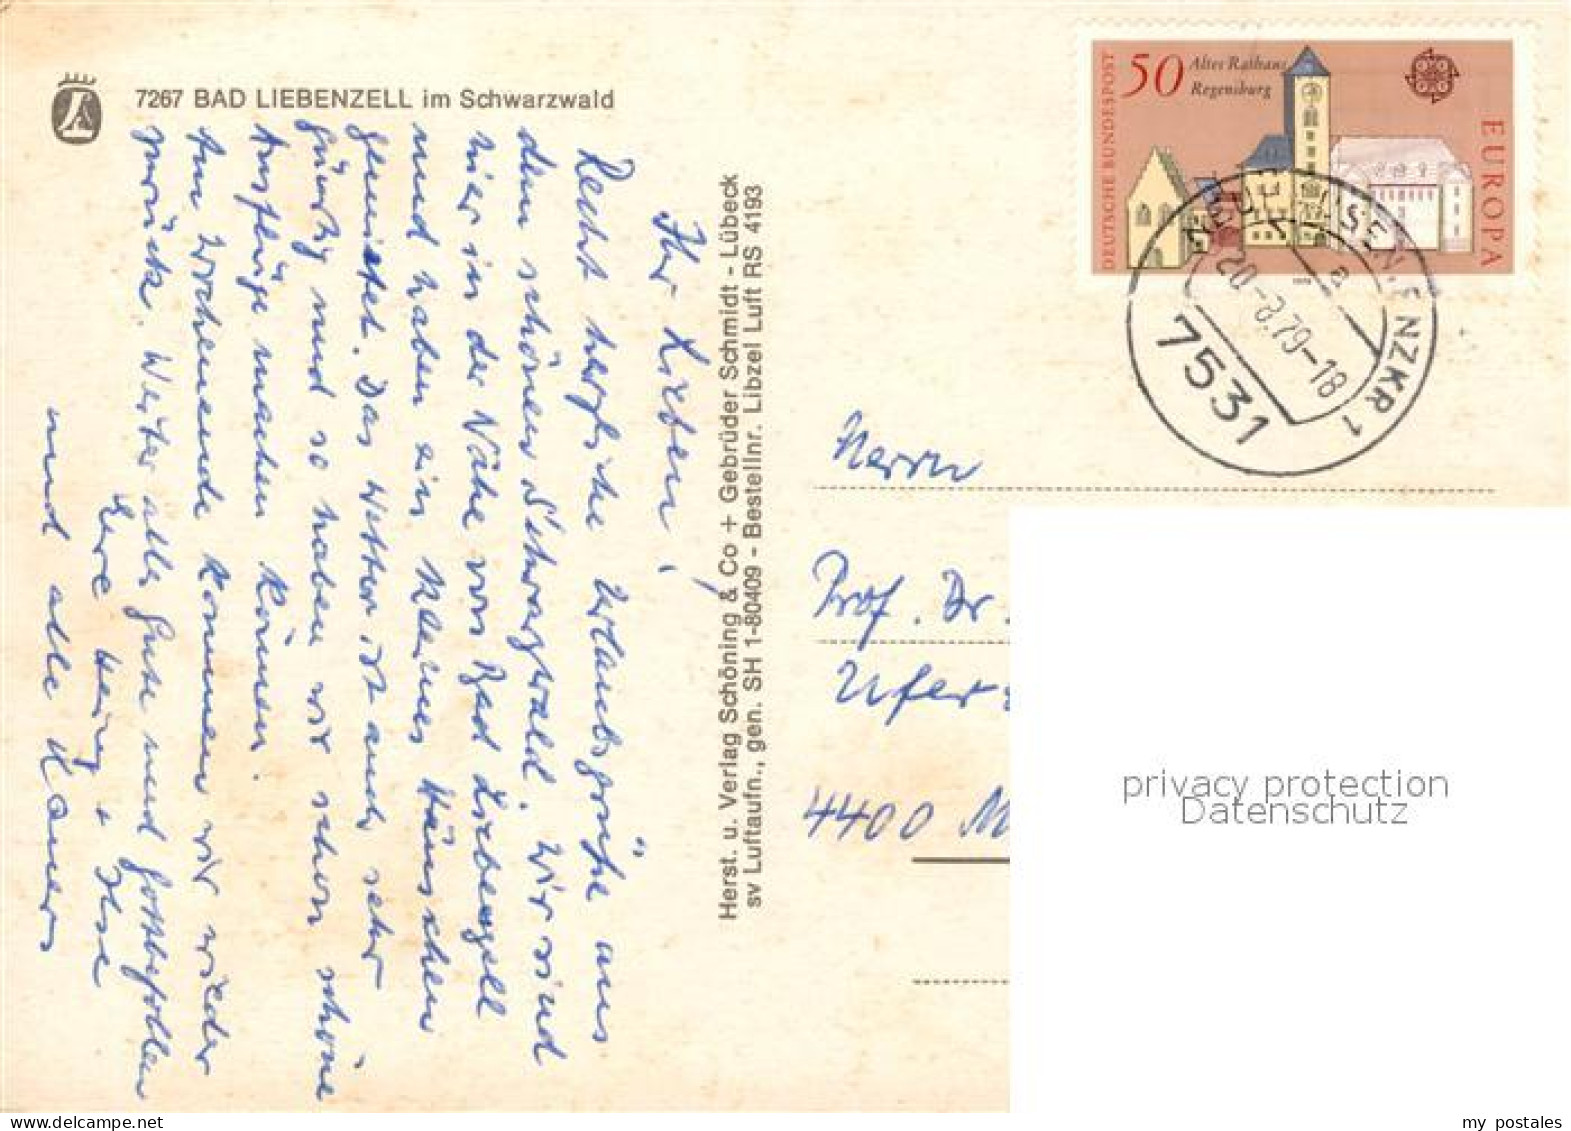 7267 BAD LIEBENZELL im Schwarzwald
Ihr Lieben!
Recht herzliche Urlaubsgrüße aus
dem schönen Schwarzwald. Wir sind
hier in der Nähe von Bad Liebenzell
und haben ein kleines Häuschen
gemietet. Das Wetter ist auch sehr
günstig und so haben wir schon schöne
Ausflüge machen können.
Am Wochenende kommen wir wieder
zurück. Weiter alles Gute und Gottbefohlen
Eure Heinz + Ilse
und alle
Herst. u. Verlag Schöning & Co + Gebrüder Schmidt - Lübeck
sv Luftaufn., gen. SH 1-80409 - Bestellnr. Libzel Luft RS 4193
DEUTSCHE BUNDESPOST
50
Altes Rathaus
Regensburg
EUROPA
1978
ENZKR 1
a
20.-8.79-18
7531
Herrn
Prof. Dr.
Ufer
4400 M
privacy protection
Datenschutz
my-postales-ansichtskarten
my_postales